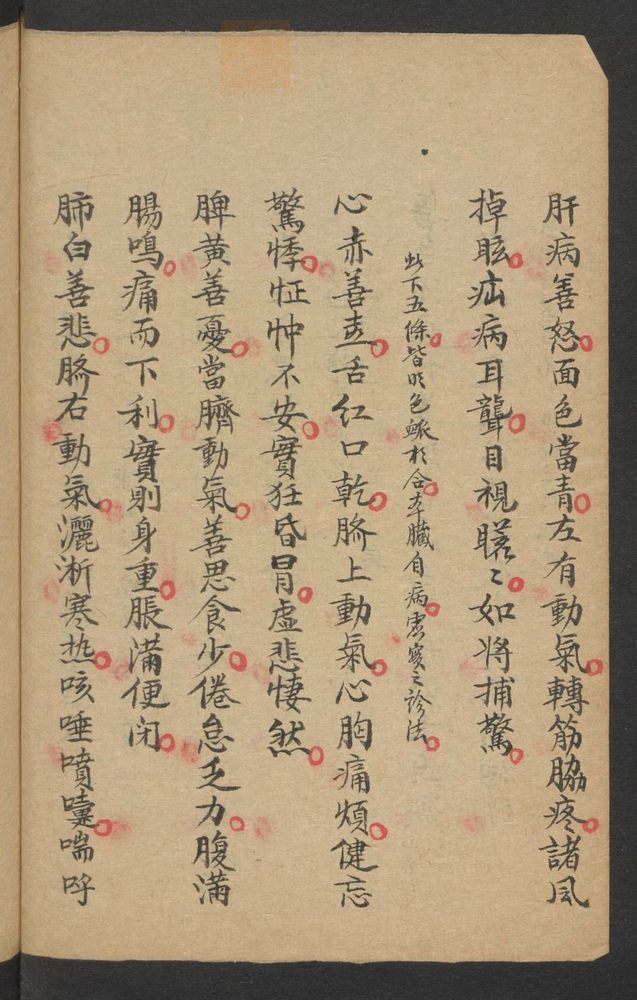 肝病善怒面色當青左有動氣轉筋脇疼諸風
掉眩疝病耳聾目視䀮〻如将捕驚
此下五條皆明色脈相合本臟自病虛實之診法
心赤善喜舌红口乾臍上動氣心胸痛煩健忘
驚悸怔忡不安實狂昏冒虛悲悽然
脾黃善憂當臍動氣善思食少倦怠乏力腹滿
腸鳴痛而下利實則身重脹滿便闭
肺白善悲臍右動氣灑淅寒热咳唾噴嚏喘呼